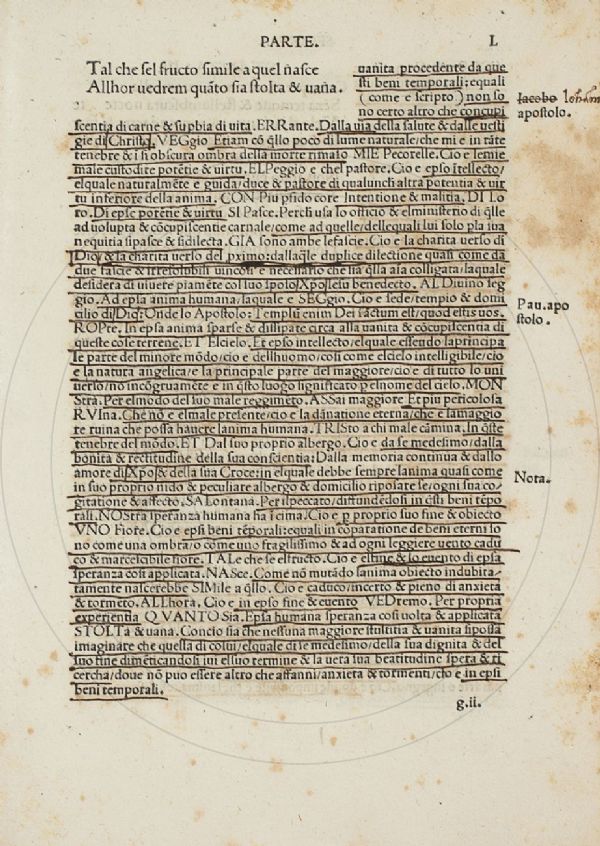 PARTE. L
Tal che sel fructo simile a quel ñasce
Allhor uedrem quāto sia stolta & uaña.
uanita procedente da que
sti beni temporali: equali
(come e scripto) non so
no certo altro che concupi
Iacobo
apostolo.
scentia di carne & supbia di uita. ERRante. Dalla uia della salute & dalle uesti
gie di Christo. VEGgio Etiam cō q̄llo poco di lume naturale/che mi e in tāte
tenebre & ī si obscura ombra della morte rimaso MIE Pecorelle. Cio e le mie
male custodite potētie & uirtu. EL Peggio e chel pastore. Cio e epso itellecto/
elquale naturalmēte e guida/duce & pastore di qualunch altra potentia & uir
tu inferiore della anima. CON Piu psido core Intentione & malitia. DI Lo
ro. Di epse potētie & uirtu SI Pasce. Perch usa lo officio & elministerio di q̄lle
ad uolupta & cōcupiscentie carnale/come ad quelle/dellequali lui solo pla sua
nequitia sipasce & sidilecta. GIA sono ambe lefascie. Cio e la charita uerso di
Dio & la charita uerso del pximo: dallaq̄le duplice dilectione quasi come da
due fascie & irresolubili uincoli e necessario che sia q̄lla aīa colligata/laquale
desidera di uiuere piamēte col suo sposo Xpo Iesu benedecto. AL Diuino seg
gio. Ad epsa anima humana/laquale e SEGgio. Cio e sede/tempio & domi
cilio di Dio: Onde lo Apostolo: Templū enim Dei sāctum est/quod estis uos.
Pau. apo
stolo.
ROPte. In epsa anima sparse & dissipate circa alla uanita & cōcupiscentia di
queste cose terrene. ET Elcielo. Et epso intellecto/elquale essendo la principa
le parte del minore mōdo/cio e dellhuomo/cosi come elcielo intelligibile/cio
e la natura angelica/e la principale parte del maggiore/cio e di tutto lo uni
uerso/no incōgruamēte e in q̄sto luogo significato pelnome del cielo. MON
stra. Per elmodo del suo male reggimēto. ASSai maggiore Et piu pericolosa
RVIna. Che nō e elmale presente/cio e la dānatione eterna/che e la maggio
re ruina che possa hauere lanima humana. TRISto a chi male cāmina. In q̄ste
tenebre del mōdo. ET Dal suo proprio albergo. Cio e da se medesimo/dalla
bonita & rectitudine della sua conscientia: Dalla memoria continua & dallo
amore di Xpo & de la sua Croce: in elquale debbe sempre lanima quasi come
in suo proprio nido & peculiare albergo & domicilio riposare se/ogni sua co-
Nota.
gitatione & affecto. SALontana. Per ilpeccato/diffundēdosi in q̄sti beni tēpo
rali. NOStra speranza humana ha ī cima. Cio e p proprio suo fine & obiecto
VNO Fiore. Cio e epsi beni tēporali: equali in cōparatione de beni eterni so
no come una ombra/o come uno fragilissimo & ad ogni leggiere uento cadu
co & marcescibile fiore. TALe che se elstructo. Cio e elfine & lo euento di epsa
speranza cosi applicata. NASce. Come nō mutādo lanima obiecto indubita-
tamente nascerebbe SIMile a q̄llo. Cio e caduco/incerto & pieno di anxieta
& tormēto. ALLhora. Cio e in epso fine & euento VEDremo. Per propria
experientia QVANTO Sia. Epsa humana speranza cosi uolta & applicata
STOLTA & uana. Concio sia che nessuna maggiore stultitia & uanita sipossa
imaginare che quella di colui/elquale di se medesimo/della sua dignita & del
suo fine dimēticandosi iui elsuo termine & la uera sua beatitudine spera & ri
cercha/doue nō puo essere altro che affanni/anxieta & tormenti/cio e in epsi
beni temporali.
g.ii.